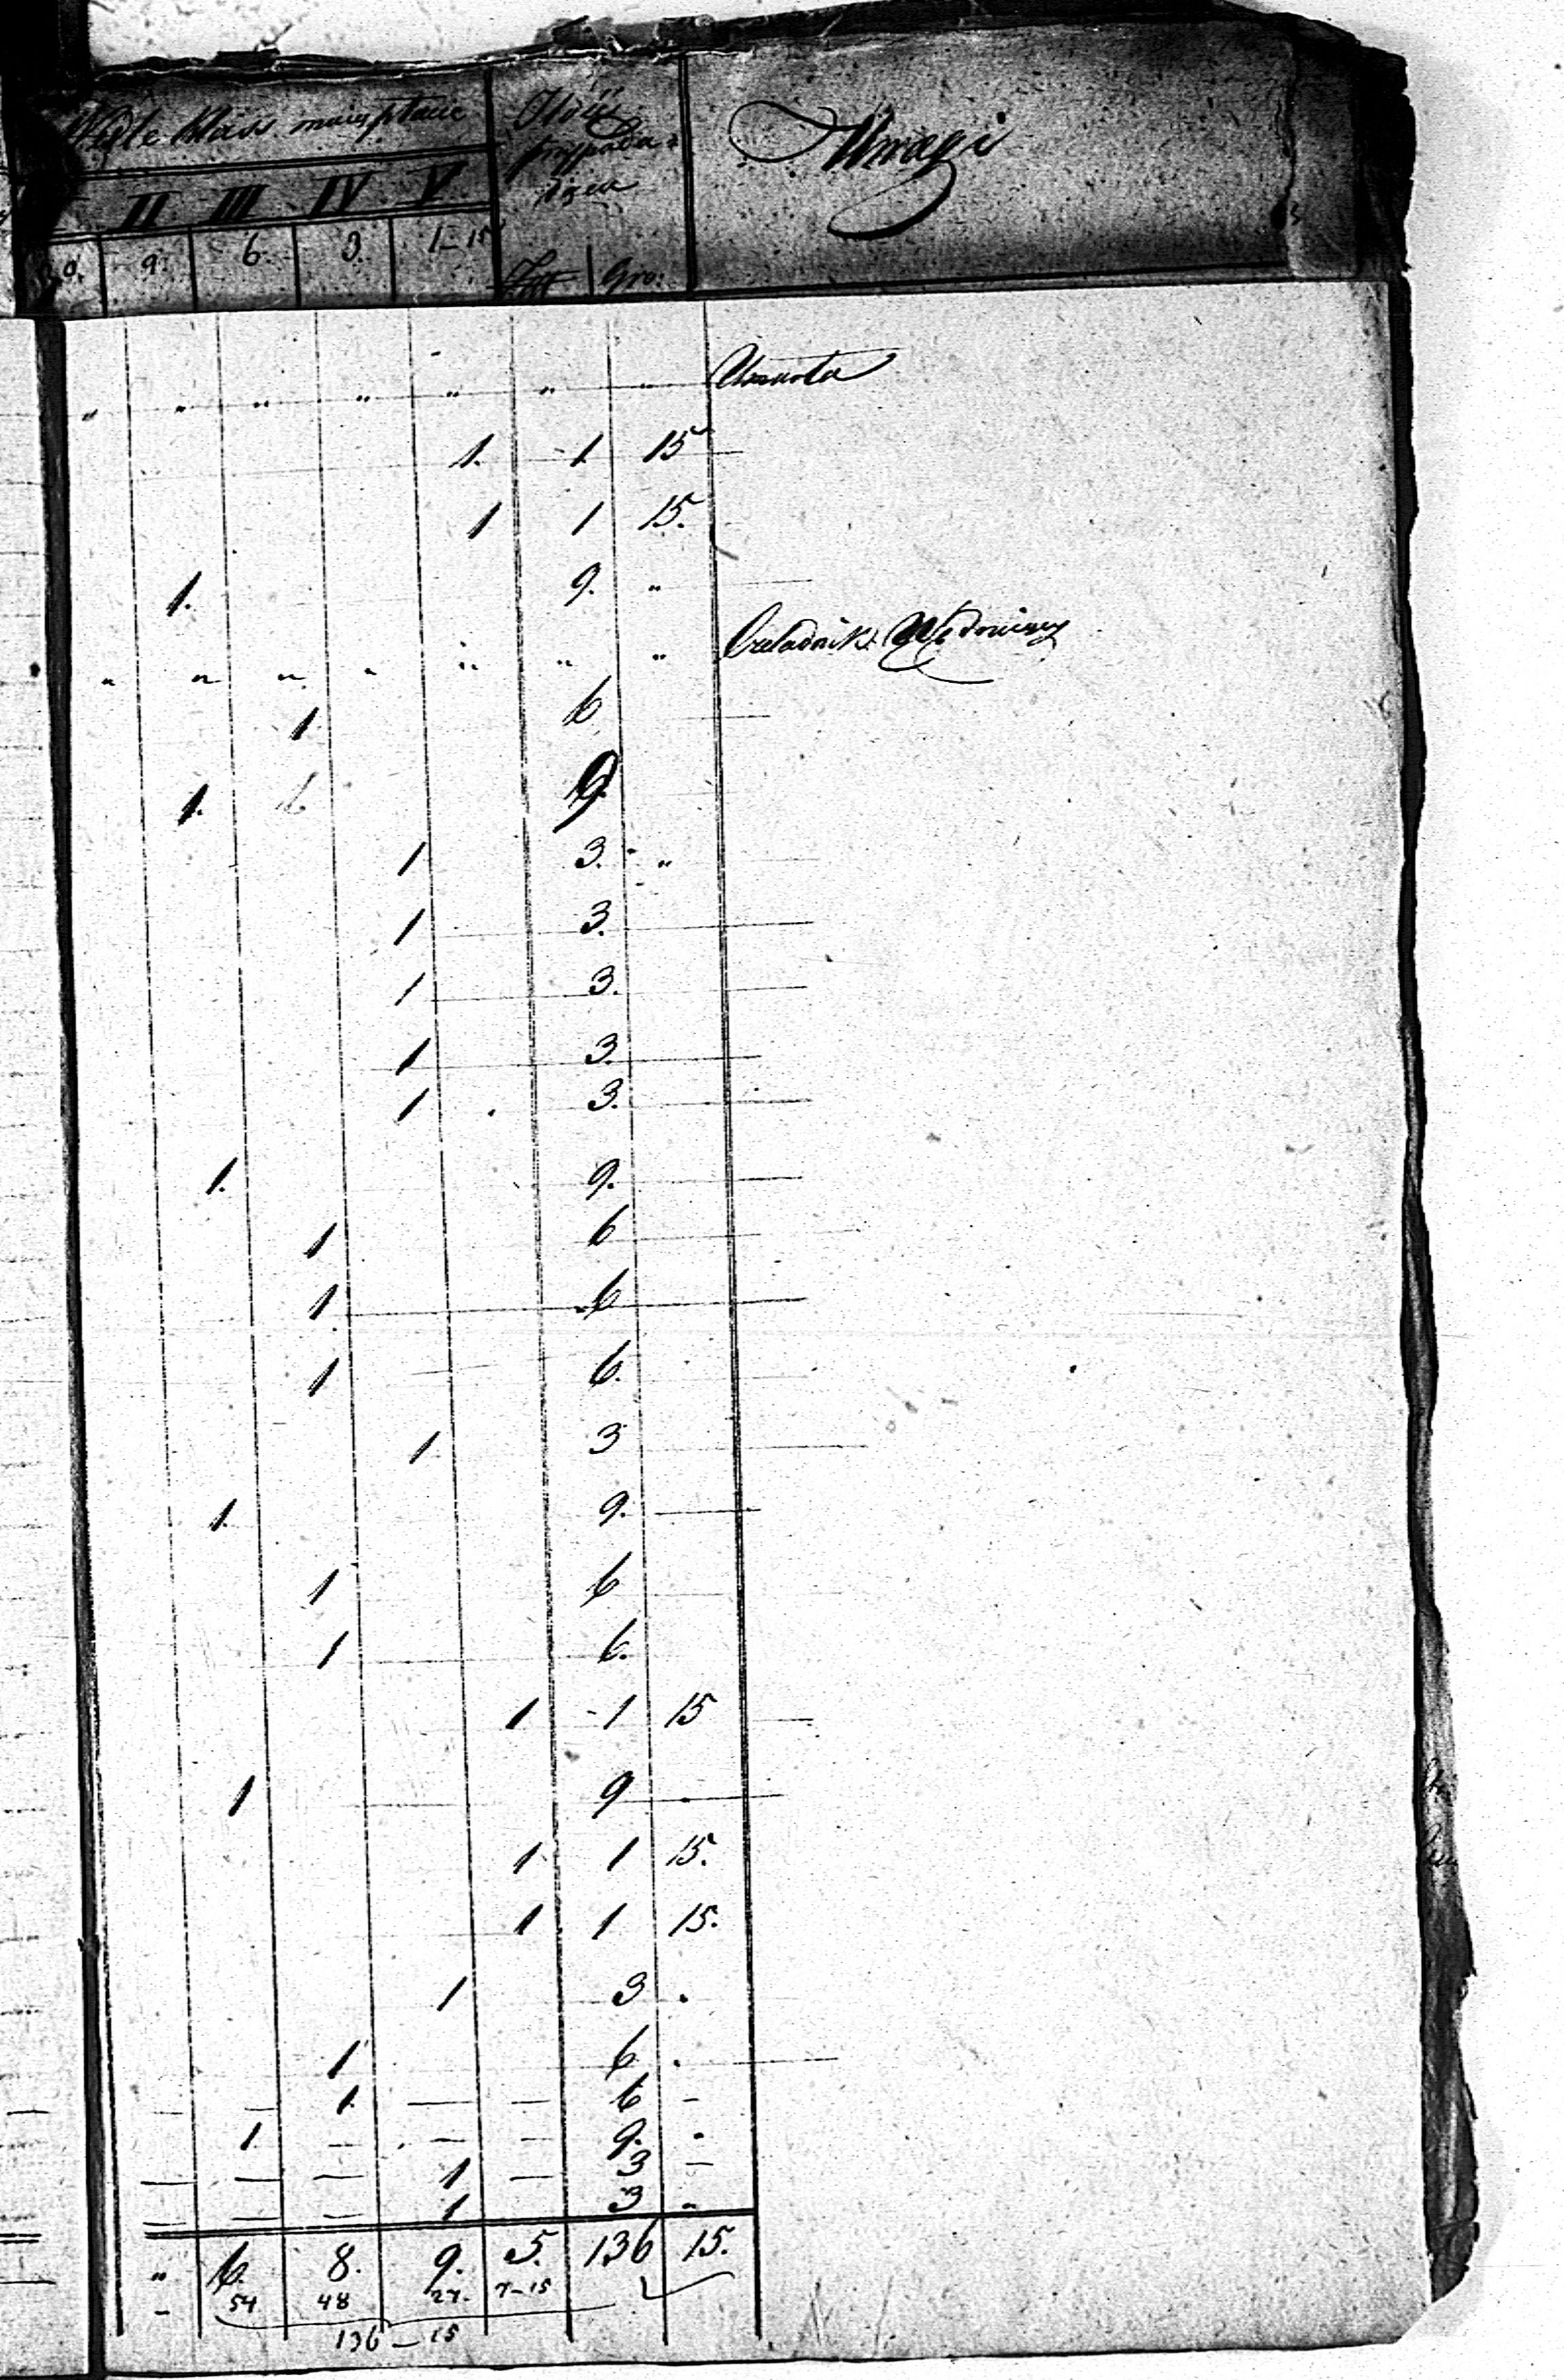 Klass mają płacić
Uwagi
II III IV V
9. 6. 3. 1–15
Gro:
" " " " " " " Umarła
1. 1 15
1 1 15.
1. 9. "
" " " " " " " Czeladnik
1 6
1. 6 9
1 3. "
1 3.
1 3.
1 3.
1 3.
1. 9.
1 6
1. 6
1 6.
1 3
1. 9.
1 6
1 6.
1 1 15
1 9 .
1 1 15.
1 1 15.
1 3 .
1 6 .
— — 1. — — 6 –
1. — — — 9. .
— — — 1 — 3 –
— — — 1 3 .
" 6. 8. 9. 5. 136 15.
– 54 48 27. 7–15
136–15